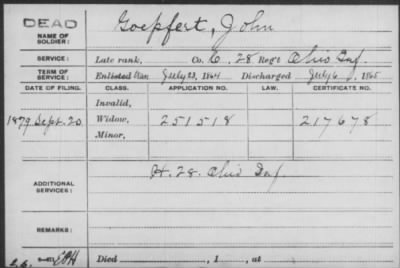 DEAD
NAME OF SOLDIER: Goepfert, John
SERVICE: Late rank, Co. C, 28 Reg't Ohio Inf.
TERM OF SERVICE: Enlisted July 23, 1864 Discharged July 6, 1865
DATE OF FILING. CLASS. APPLICATION NO. LAW. CERTIFICATE NO.
Invalid,
1879 Sept. 20 Widow, 251518 217678
Minor,
ADDITIONAL SERVICES: H. 28. Ohio Inf.
REMARKS:
Died , 1 , at